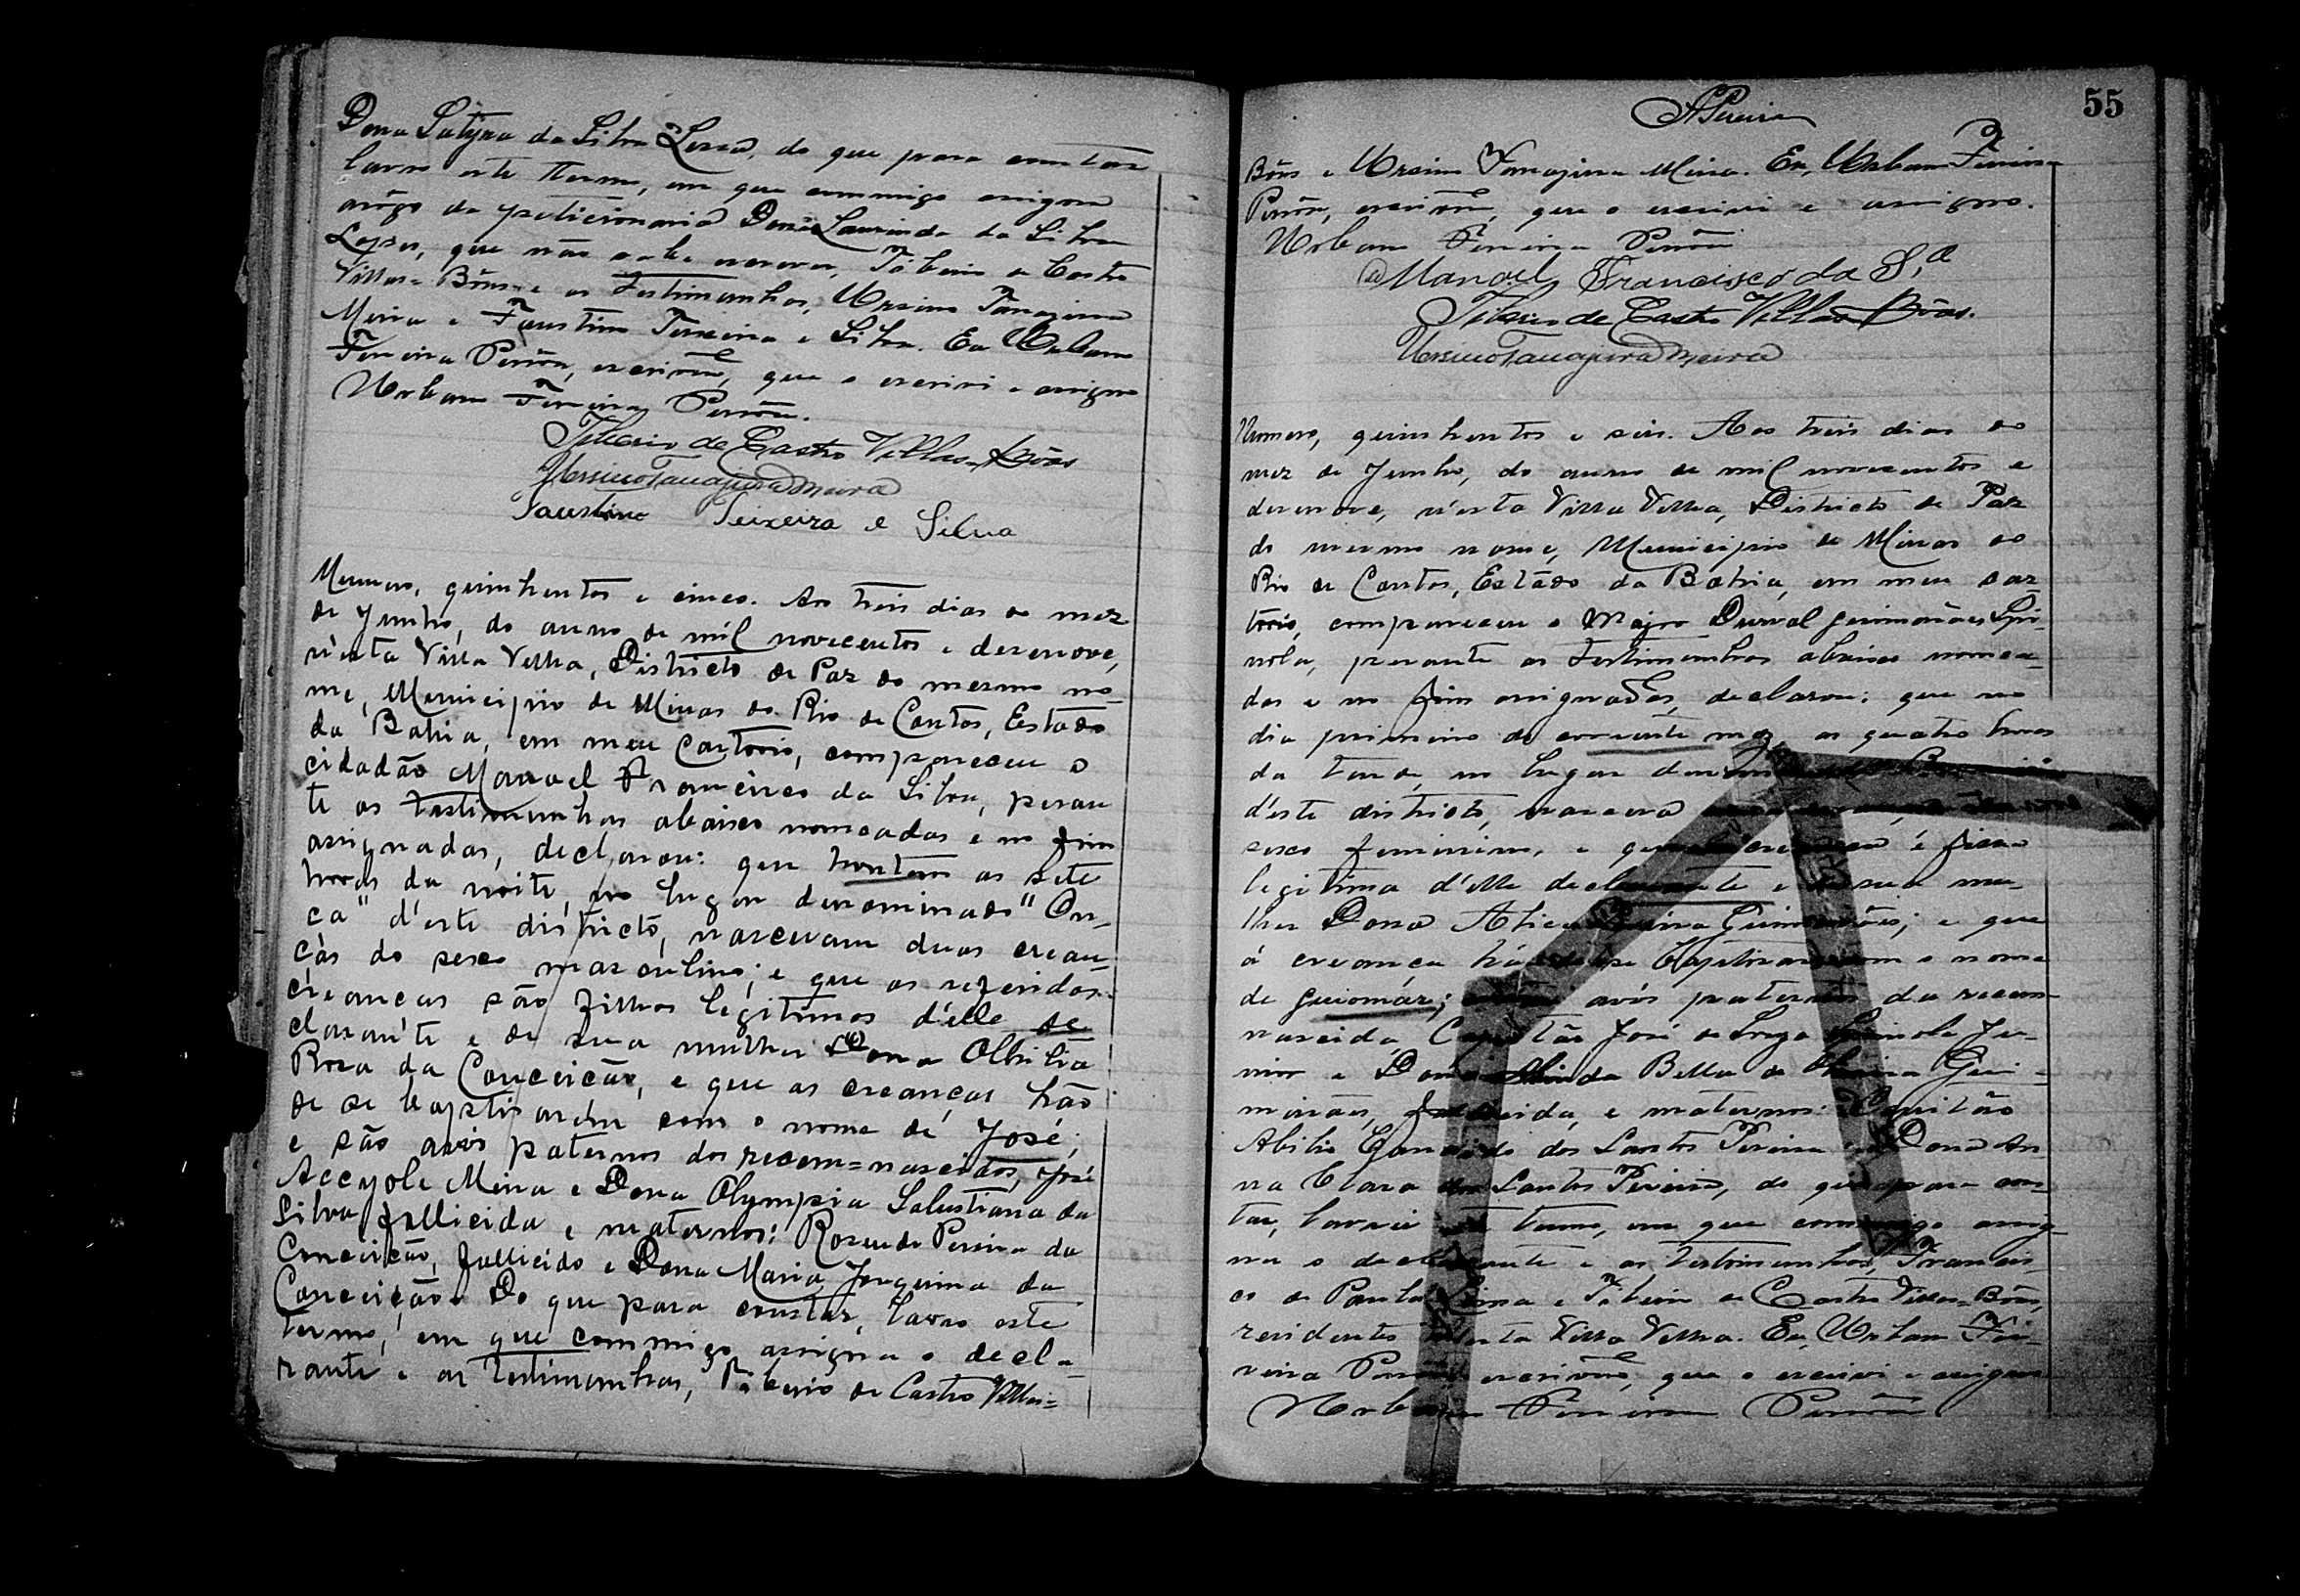 Dona da Silva do que para constar
lavro este Termo, em que commigo assigna
arôgo da peticionaria Dona Laurinda da Silva
Lopes, que não sabe escrever, Tiberio de Castro
Villas-Bôas e as testimunhas, Ursino Tanajura
Meira e Faustino Teixeira e Silva. Eu Urbano
Ferreira escrivão, que o escrivi e assigno
Urbano Ferreira
Tiberio de Castro Villas Bôas
Ursino Tanajura Meira
Faustino Teixeira e Silva
Numero, quinhentos e cinco. Aos treis dias do mez
de Junho, do anno de mil novecentos e desenove,
n'esta Villa Velha, Districto de Paz do mesmo no-
me, Municipio de Minas do Rio de Contas, Estado
da Bahia, em meu Cartorio, compareceu o
cidadão Manoel Francisco da Silva, peran
te as testimunhas abaixo nomeadas e no fim
assignadas, declarou: que hontem as sete
horas da noite, no lugar denominado "On-
ça" d'este districto, nasceram duas crean-
ças do sexo masculino; e que as referidas
creanças são filhos legitimos d'elle de
clarante e de sua mulher Dona Othilia
Roza da Conceição, e que as creanças hão
de se baptisarem com o nome de José;
e são avós paternos dos recem=nascidos, José
Accyole Meira e Dona Olympia Salustiana da
Silva fallicida e maternos: Rozendo Pereira da
Conceição, fallicido e Dona Maria Joaquina da
Conceição. Do que para constar, lavro este
termo, em que commigo assigna o decla-
rante e as testimunhas, Tiberio de Castro Villas=
55
APereira
Bôas e Ursino Tanajura Meira. Eu, Urbano Ferreira
escrivão, que o escrivi e assigno.
Urbano Ferreira
Manoel Francisco da S.a
Tiberio de Castro Villas Bôas.
Ursino Tanajura Meira
Numero, quinhentos e seis. Aos treis dias do
mez de Junho, do anno de mil novecentos e
desenove, n'esta Villa Velha, Districto de Paz
do mesmo nome, Municipio de Minas do
Rio de Contas, Estado da Bahia, em meu car-
torio, compareceu o Major Durval Guimarães Spi-
nola, perante as testimunhas abaixo nomea-
das e no fim assignadas, declarou: que no
dia primeiro do corrente mez, as quatro horas
da tarde, no lugar
d'este districto, nascera
sexo feminino, e que creança é filha
legitima d'elle declarante e de sua mu-
lher Dona Pereira Guimarães; e que
á creança há de se baptisar com o nome
de Guiomár; avós paternos da recem-
nascida, Capitão José de Souza Spinola Ju-
nior e Dona Bella de Oliveira Gui-
marães, fallicida, e maternos: Capitão
Abilio dos Santos Pereira e Dona An-
na Clara dos Santos Pereira, do que para cons-
tar, lavrei este termo, em que commigo assig-
na o declarante e as testimunhas, Francis
co de Paula Lima e Tiberio de Castro Villas=Bôas,
residentes n'esta Villa Velha. Eu, Urbano Fer-
reira escrivão, que o escrivi e assigno
Urbano Ferreira